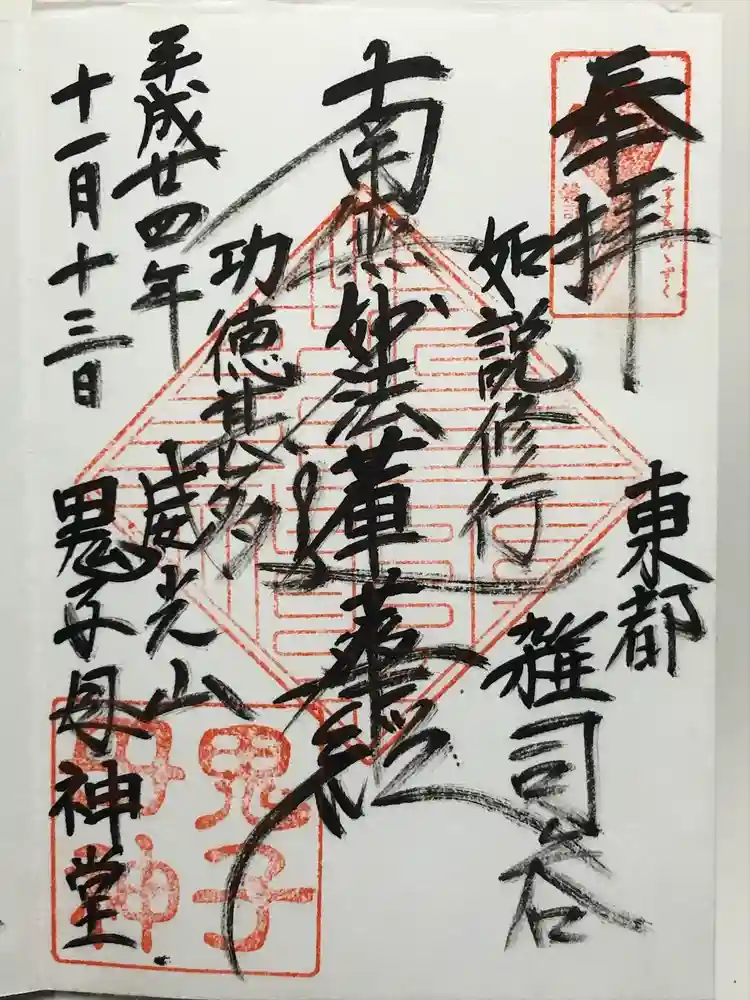 奉拝
東都
雑司谷
如説修行
南無妙法蓮華経
功徳甚多
威光山
平成廿四年
十一月十三日
鬼子母神堂
すすきみゝずく
鬼子
母神